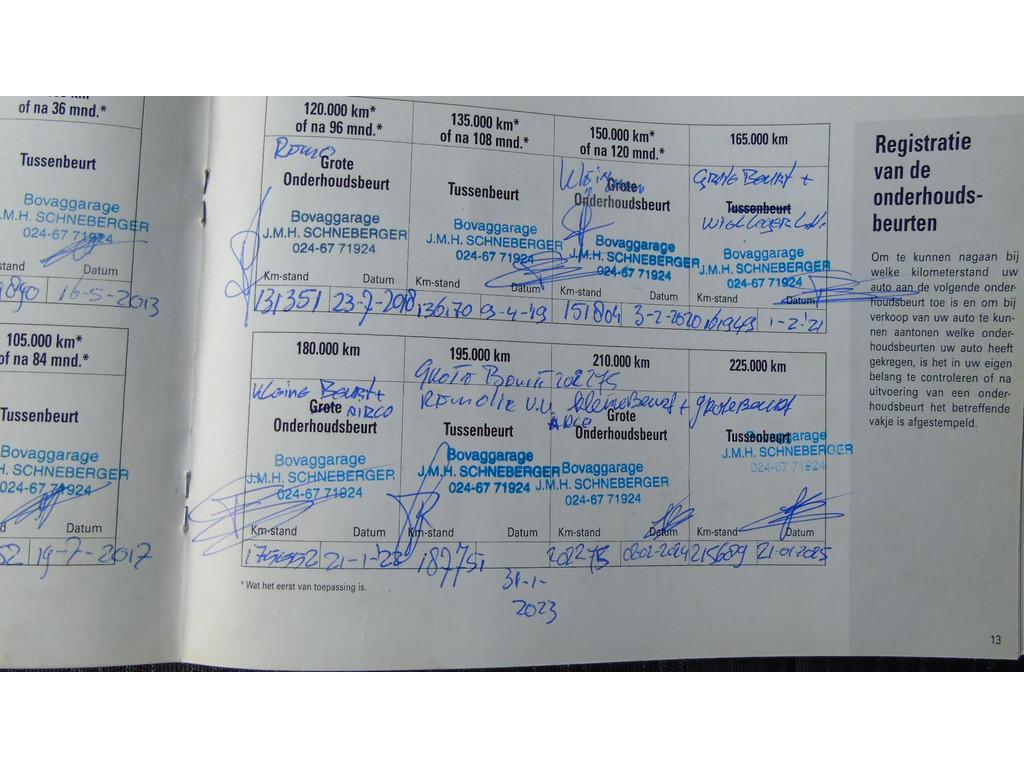 of na 36 mnd.*
Tussenbeurt
Bovaggarage
J.M.H. SCHNEBERGER
024-67 71924
stand Datum
16-5-2013
105.000 km*
of na 84 mnd.*
Tussenbeurt
Bovaggarage
J.M.H. SCHNEBERGER
024-67 71924
Datum
52 19-7-2017
120.000 km*
of na 96 mnd.*
Grote
Onderhoudsbeurt
Bovaggarage
J.M.H. SCHNEBERGER
024-67 71924
Km-stand Datum
131351 23-7-2018
135.000 km*
of na 108 mnd.*
Tussenbeurt
Bovaggarage
J.M.H. SCHNEBERGER
024-67 71924
Km-stand Datum
136170 03-4-19
150.000 km*
of na 120 mnd.*
Grote
Onderhoudsbeurt
Bovaggarage
J.M.H. SCHNEBERGER
024-67 71924
Km-stand
151804 3-2-2020
165.000 km
Grote Beurt +
Tussenbeurt
Bovaggarage
J.M.H. SCHNEBERGER
024-67 71924
Km-stand Datum
161943 1-2-'21
180.000 km
Kleine Beurt +
AIRCO
Grote
Onderhoudsbeurt
Bovaggarage
J.M.H. SCHNEBERGER
024-67 71924
Km-stand Datum
21-1-'22
195.000 km
Grote Beurt 202275
Remolie V.V.
Tussenbeurt
Bovaggarage
J.M.H. SCHNEBERGER
024-67 71924
Km-stand Datum
187751
31-1-
2023
210.000 km
kleine Beurt +
Grote
Onderhoudsbeurt
Bovaggarage
J.M.H. SCHNEBERGER
024-67 71924
Km-stand Datum
202275 02-02-2024
225.000 km
grote Beurt
Tussenbeurt
Bovaggarage
J.M.H. SCHNEBERGER
024-67 71924
Km-stand Datum
215689 21-01-2025
* Wat het eerst van toepassing is.
Registratie
van de
onderhouds-
beurten
Om te kunnen nagaan bij
welke kilometerstand uw
auto aan de volgende onder-
houdsbeurt toe is en om bij
verkoop van uw auto te kun-
nen aantonen welke onder-
houdsbeurten uw auto heeft
gekregen, is het in uw eigen
belang te controleren of na
uitvoering van een onder-
houdsbeurt het betreffende
vakje is afgestempeld.
13